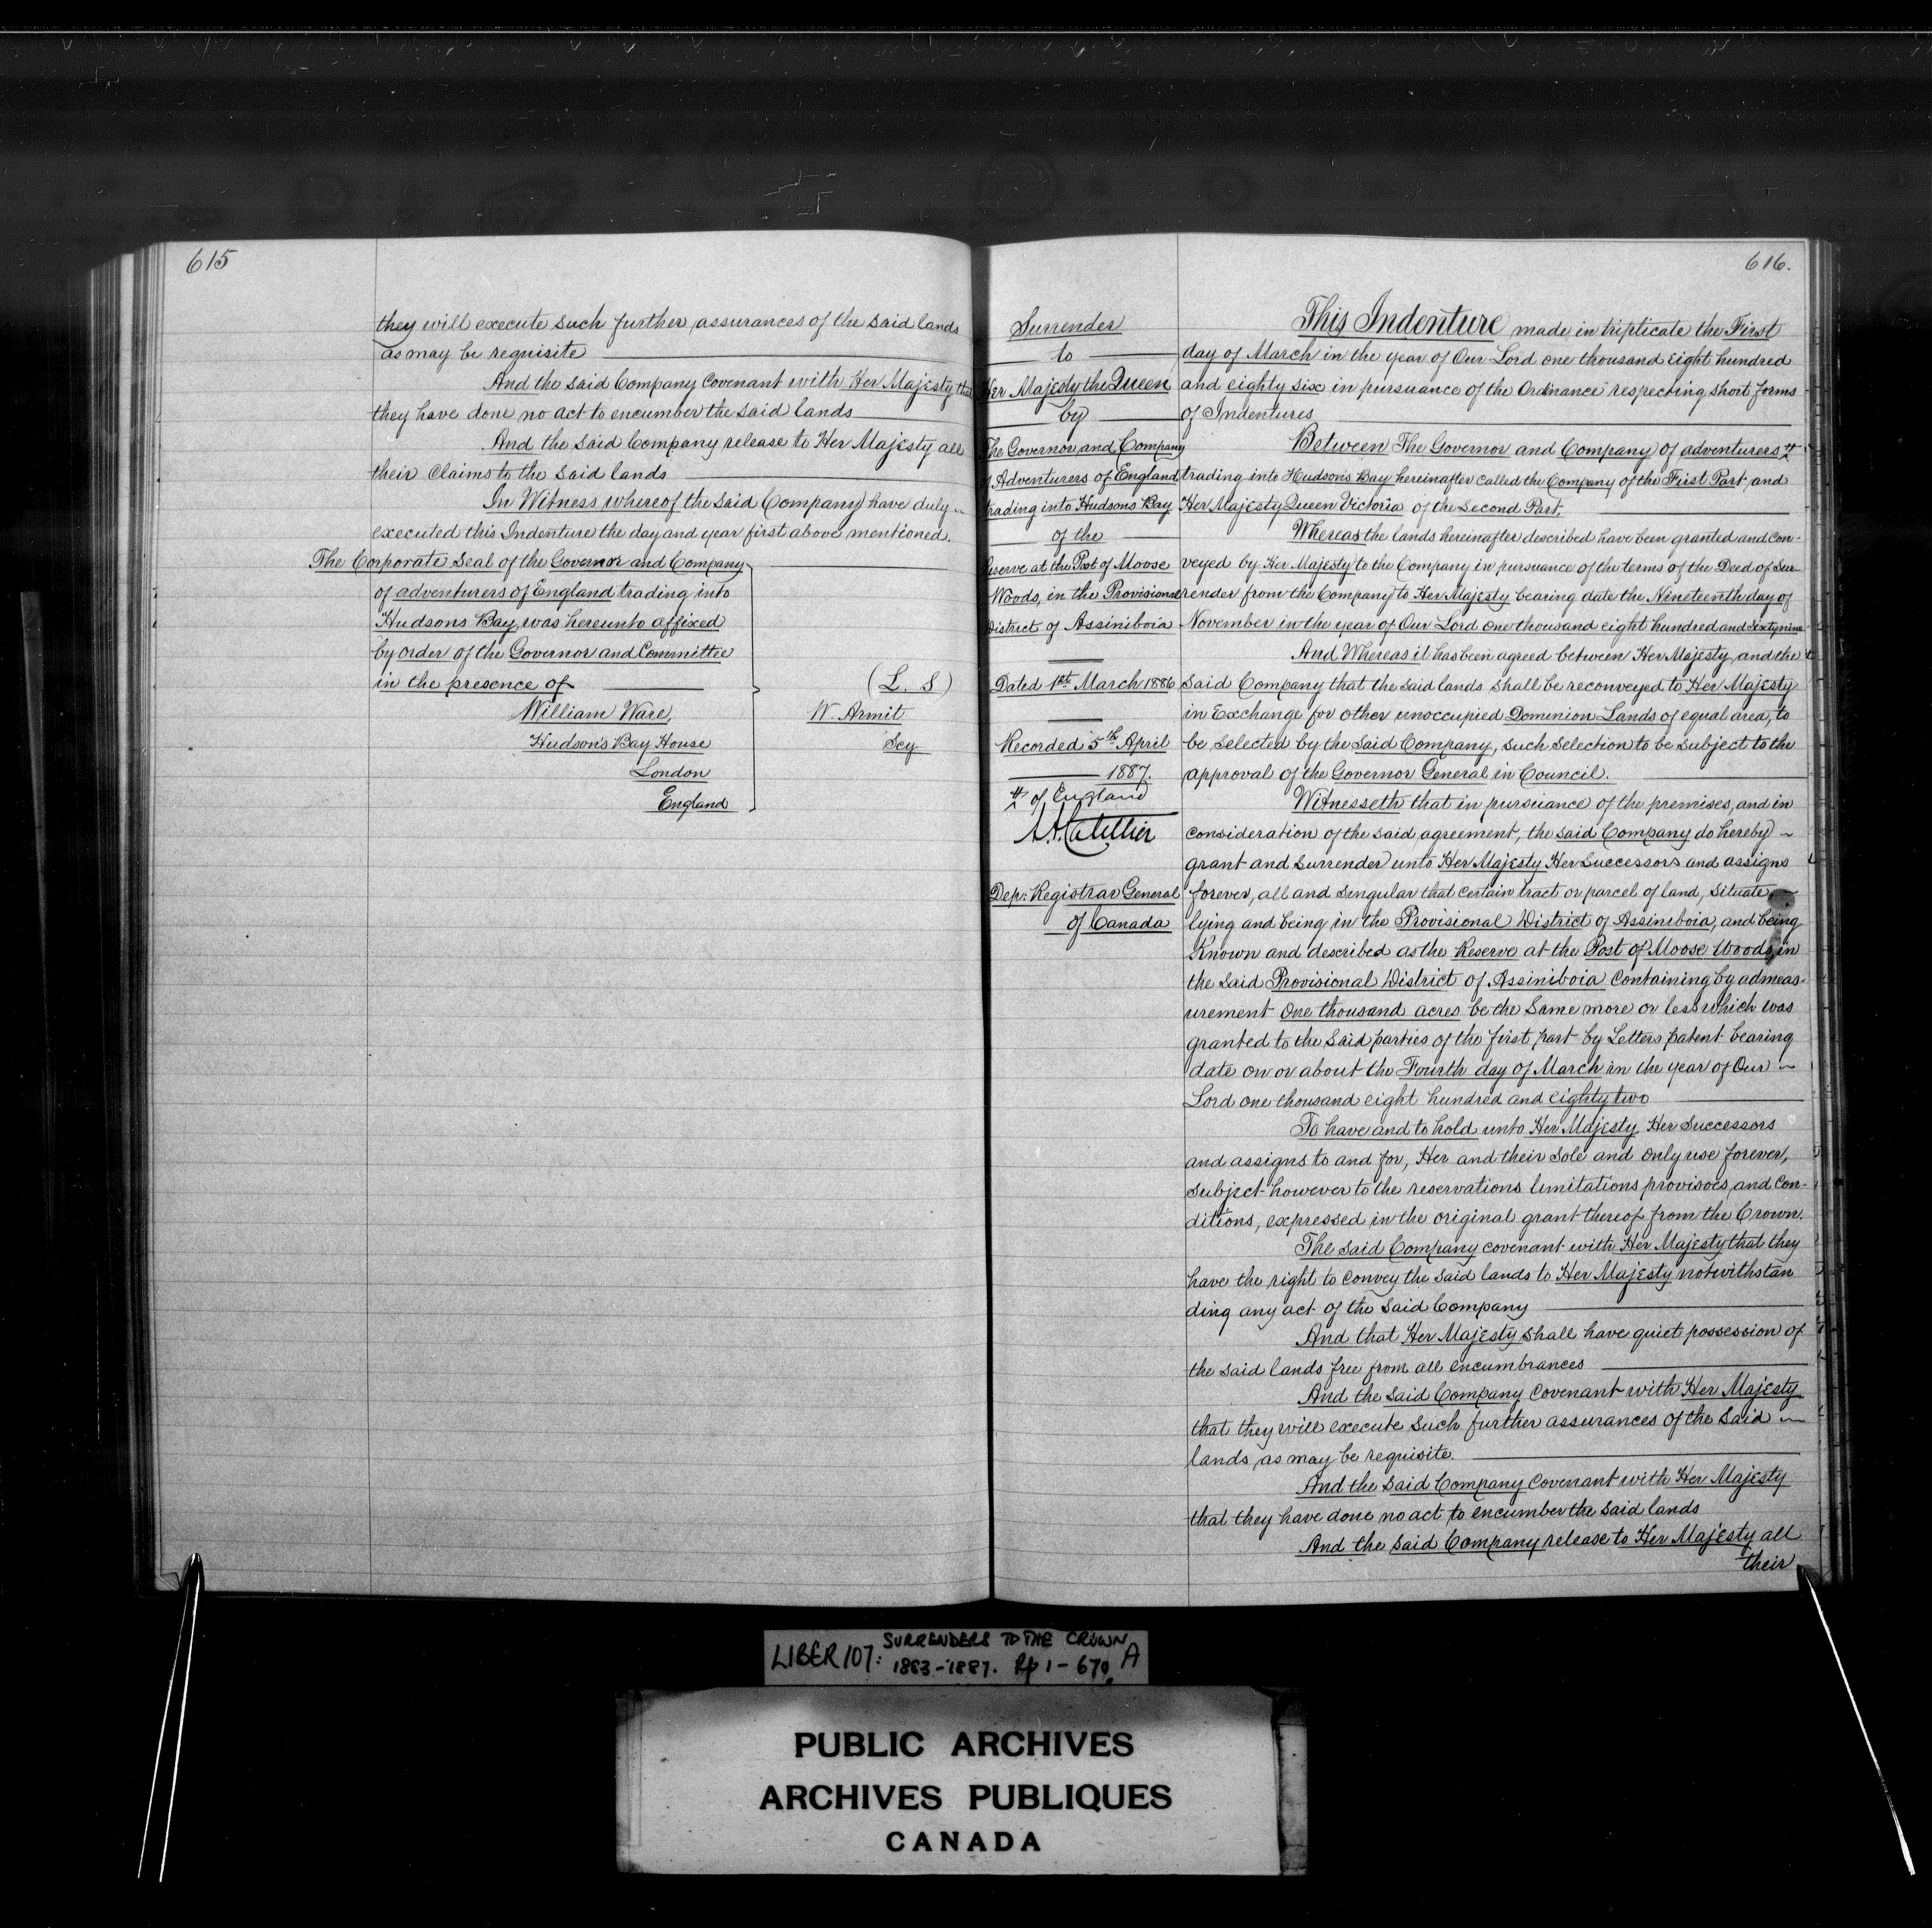 615
they will execute such further assurances of the said lands
as may be requisite
And the said Company covenant with Her Majesty that
they have done no act to encumber the said lands
And the said Company release to Her Majesty all
their claims to the said lands
In Witness whereof the said Company have duly
executed this Indenture the day and year first above mentioned.
The Corporate Seal of the Governor and Company
of adventurers of England trading into
Hudsons Bay, was hereunto affixed
by order of the Governor and Committee
in the presence of
(L. S)
William Ware,
W. Armit
Hudson's Bay House
Secy
London
England
616.
Surrender
to
Her Majesty the Queen
by
The Governor and Company
of Adventurers of England
trading into Hudsons Bay
of the
Reserve at the Post of Moose
Woods, in the Provisional
District of Assiniboia
Dated 1st March 1886
Recorded 5th April
1887.
# of England
Dep: Registrar General
of Canada
This Indenture made in triplicate the First
day of March in the year of Our Lord one thousand eight hundred
and eighty six in pursuance of the Ordinance respecting short forms
of Indentures
Between The Governor and Company of adventurers #
trading into Hudsons Bay hereinafter called the Company of the First Part, and
Her Majesty Queen Victoria of the Second Part,
Whereas the lands hereinafter described have been granted and con-
veyed by Her Majesty to the Company in pursuance of the terms of the Deed of Sur-
render from the Company to Her Majesty bearing date the Nineteenth day of
November in the year of Our Lord one thousand eight hundred and sixty nine
And Whereas it has been agreed between Her Majesty, and the
said Company that the said lands shall be reconveyed to Her Majesty
in Exchange for other unoccupied Dominion Lands of equal area, to
be selected by the said Company, such selection to be subject to the
approval of the Governor General in Council.
Witnesseth that in pursuance of the premises, and in
consideration of the said agreement, the said Company do hereby
grant and surrender unto Her Majesty Her Successors and assigns
forever, all and singular that certain tract or parcel of land, situate,
lying and being in the Provisional District of Assiniboia, and being
Known and described as the Reserve at the Post of Moose Woods, in
the said Provisional District of Assiniboia containing by admeas-
urement One thousand acres be the same more or less which was
granted to the said parties of the first part by Letters patent bearing
date on or about the Fourth day of March in the year of Our
Lord one thousand eight hundred and eighty two
To have and to hold unto Her Majesty Her Successors
and assigns to and for, Her and their sole and only use forever,
subject however to the reservations limitations provisoes, and con-
ditions, expressed in the original grant thereof from the Crown.
The said Company covenant with Her Majesty that they
have the right to convey the said lands to Her Majesty notwithstan
ding any act of the said Company
And that Her Majesty shall have quiet possession of
the said lands free from all encumbrances
And the said Company covenant with Her Majesty
that they will execute such further assurances of the said
lands as may be requisite.
And the said Company covenant with Her Majesty
that they have done no act to encumber the said lands
And the said Company release to Her Majesty all
their
LIBER 107: SURRENDERS TO THE CROWN, A
1883-1887. Pp 1-670.
PUBLIC ARCHIVES
ARCHIVES PUBLIQUES
CANADA